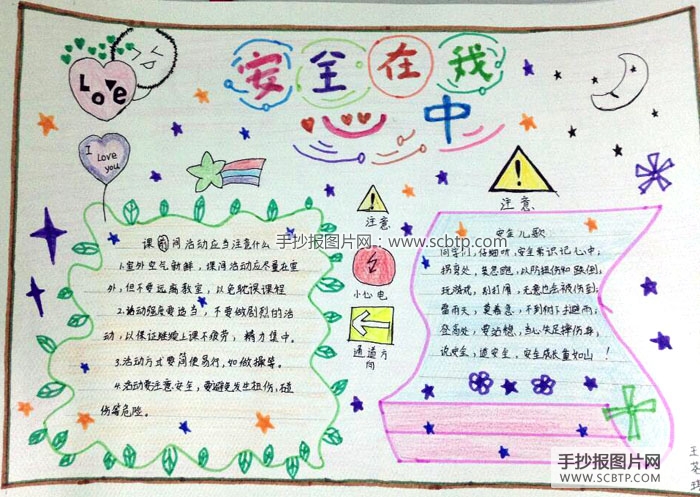 Love
I Love you
安全在我
中
注意
注意
小心电
通道方
向
课间活动应当注意什么
1.室外空气新鲜，课间活动应尽量在室
外，但不要远离教室，以免耽误课程
2.活动强度要适当，不要做剧烈的活
动，以保证继续上课不疲劳，精力集中。
3.活动方式要简便易行，如做操等。
4.活动要注意安全，要避免发生扭伤，碰
伤等危险。
安全儿歌
同学们，仔细听，安全常识记心中；
拐角处，莫急跑，以防撞伤和跌倒；
玩游戏，别打闹，无意也会被伤到；
雷雨天，莫着急，不到树下去避雨；
登高处，要站稳，当心失足摔伤身；
说安全，道安全，安全成长重如山！
王
手抄报图片网：www.scbtp.com
手抄报图片网
WWW.SCBTP.COM